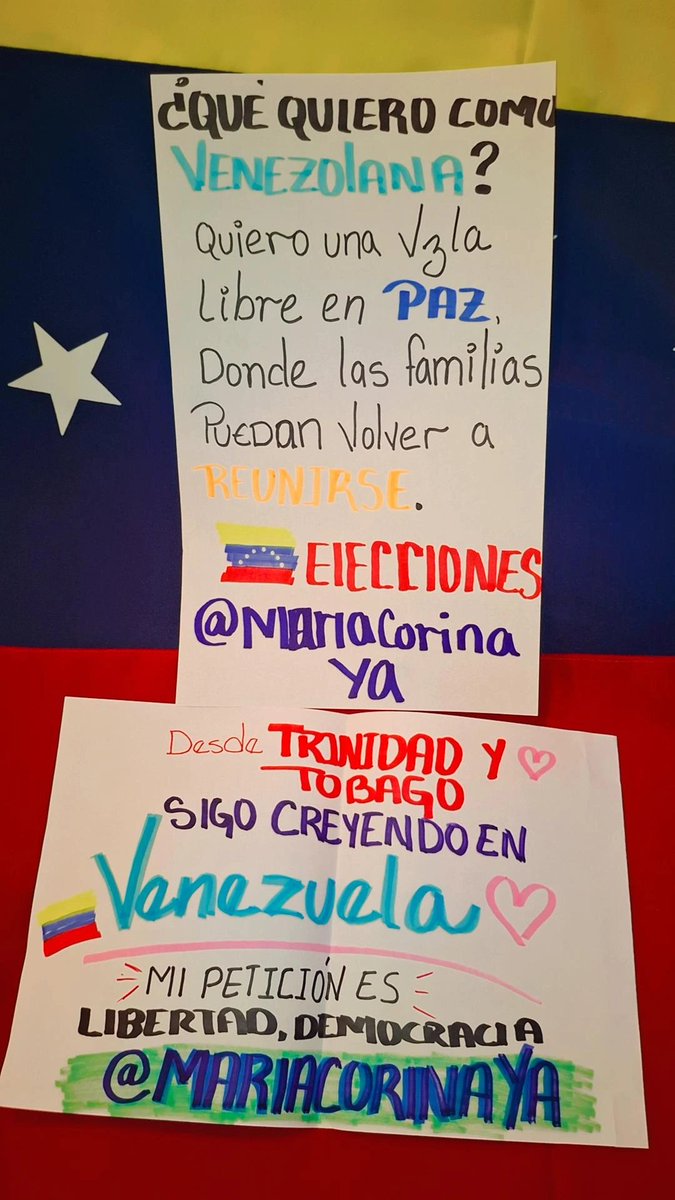 ¿QUÉ QUIERO COMO
VENEZOLANA?
Quiero una Vzla
Libre en PAZ,
Donde las familias
PUEDAN Volver a
REUNIRSE.
ElECCIONES
@MARIACorina
YA
Desde TRINIDAD Y
TOBAGO
SIGO CREYENDO EN
Venezuela
MI PETICIÓN ES
LIBERTAD, DEMOCRACIA
@MARIACORINAYA